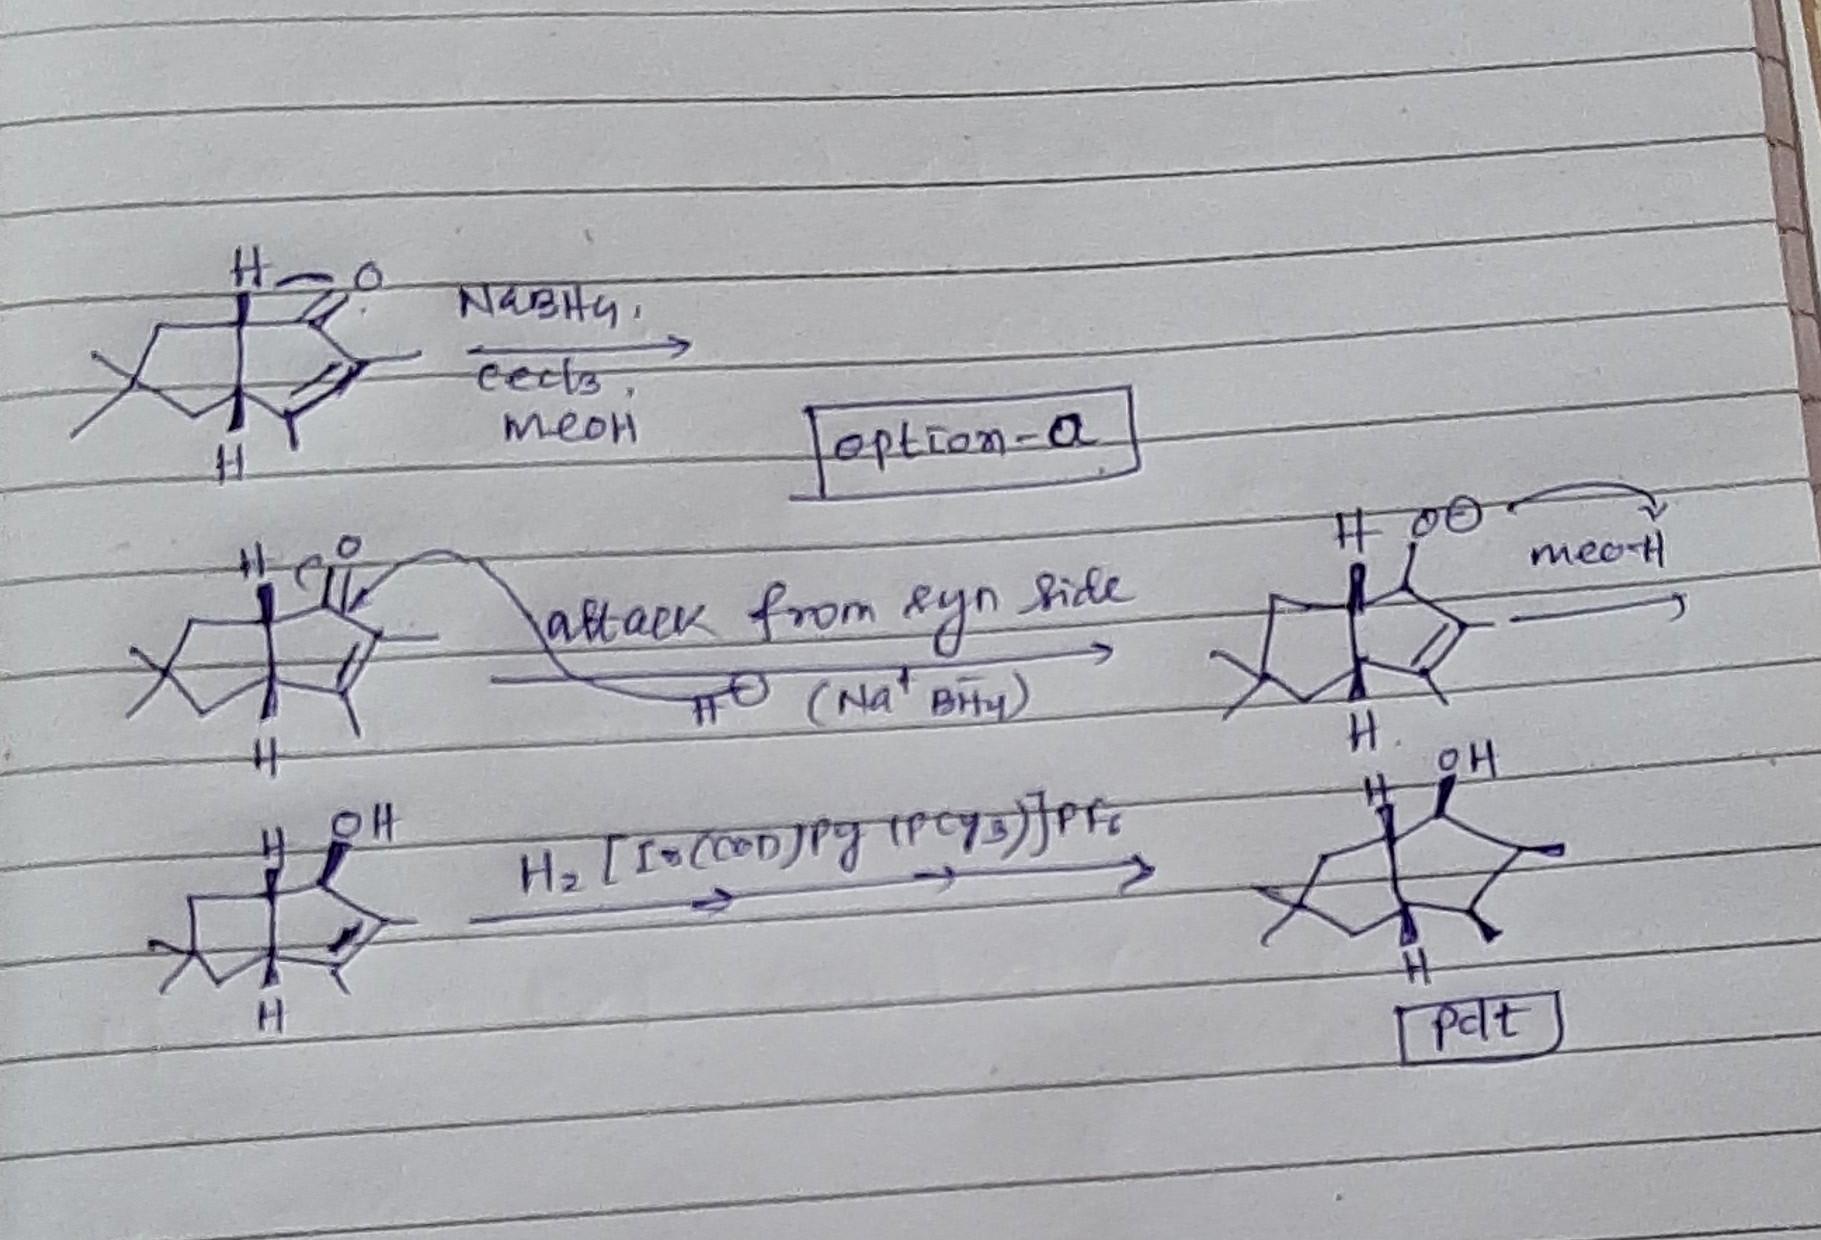 H O
NaBH4,
CeCl3,
MeOH
H
option-a
H O
attack from syn side
H⊖ (Na+ BH4-)
H
H O⊖
MeO-H
H
H OH
H2 [Ir(COD)Py (PCy3)]PF6
H
H OH
H
Pdt